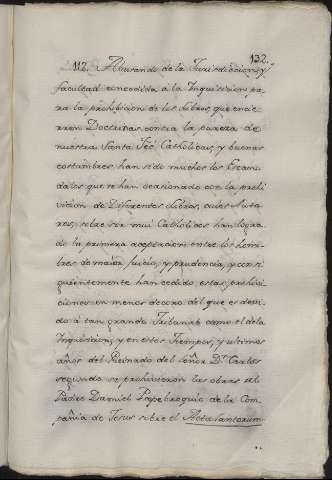 132.
112. Abusando de la Jurisdiccion, y
facultad concedida a la Inquisicion pa
ra la prohibicion de los libros, que encie
rren Doctrinas contra la pureza de
nuestra Santa Feé Catholica, y buenas
costumbres, han sido muchos los Escan
dalos que se han ocasionado con la prohi
vicion de Diferentes libros, cuios Auto
res, sobre ser mui Catholicos han logra
do la primera aceptacion entre los hom
bres de maior Juicio, y prudencia, y consi
guientemente han cedido estas prohivi
ciones en menos decoro del que es devi
do á tan grande Tribunal como el de la
Inquisicion, y en estos tiempos, y ultimos
años del Reinado del señor Dn. Carlos
segundo se prohivieron las obras del
Padre Daniel Papebroquio de la Com
pañia de Jesus sobre el Acta Santorum